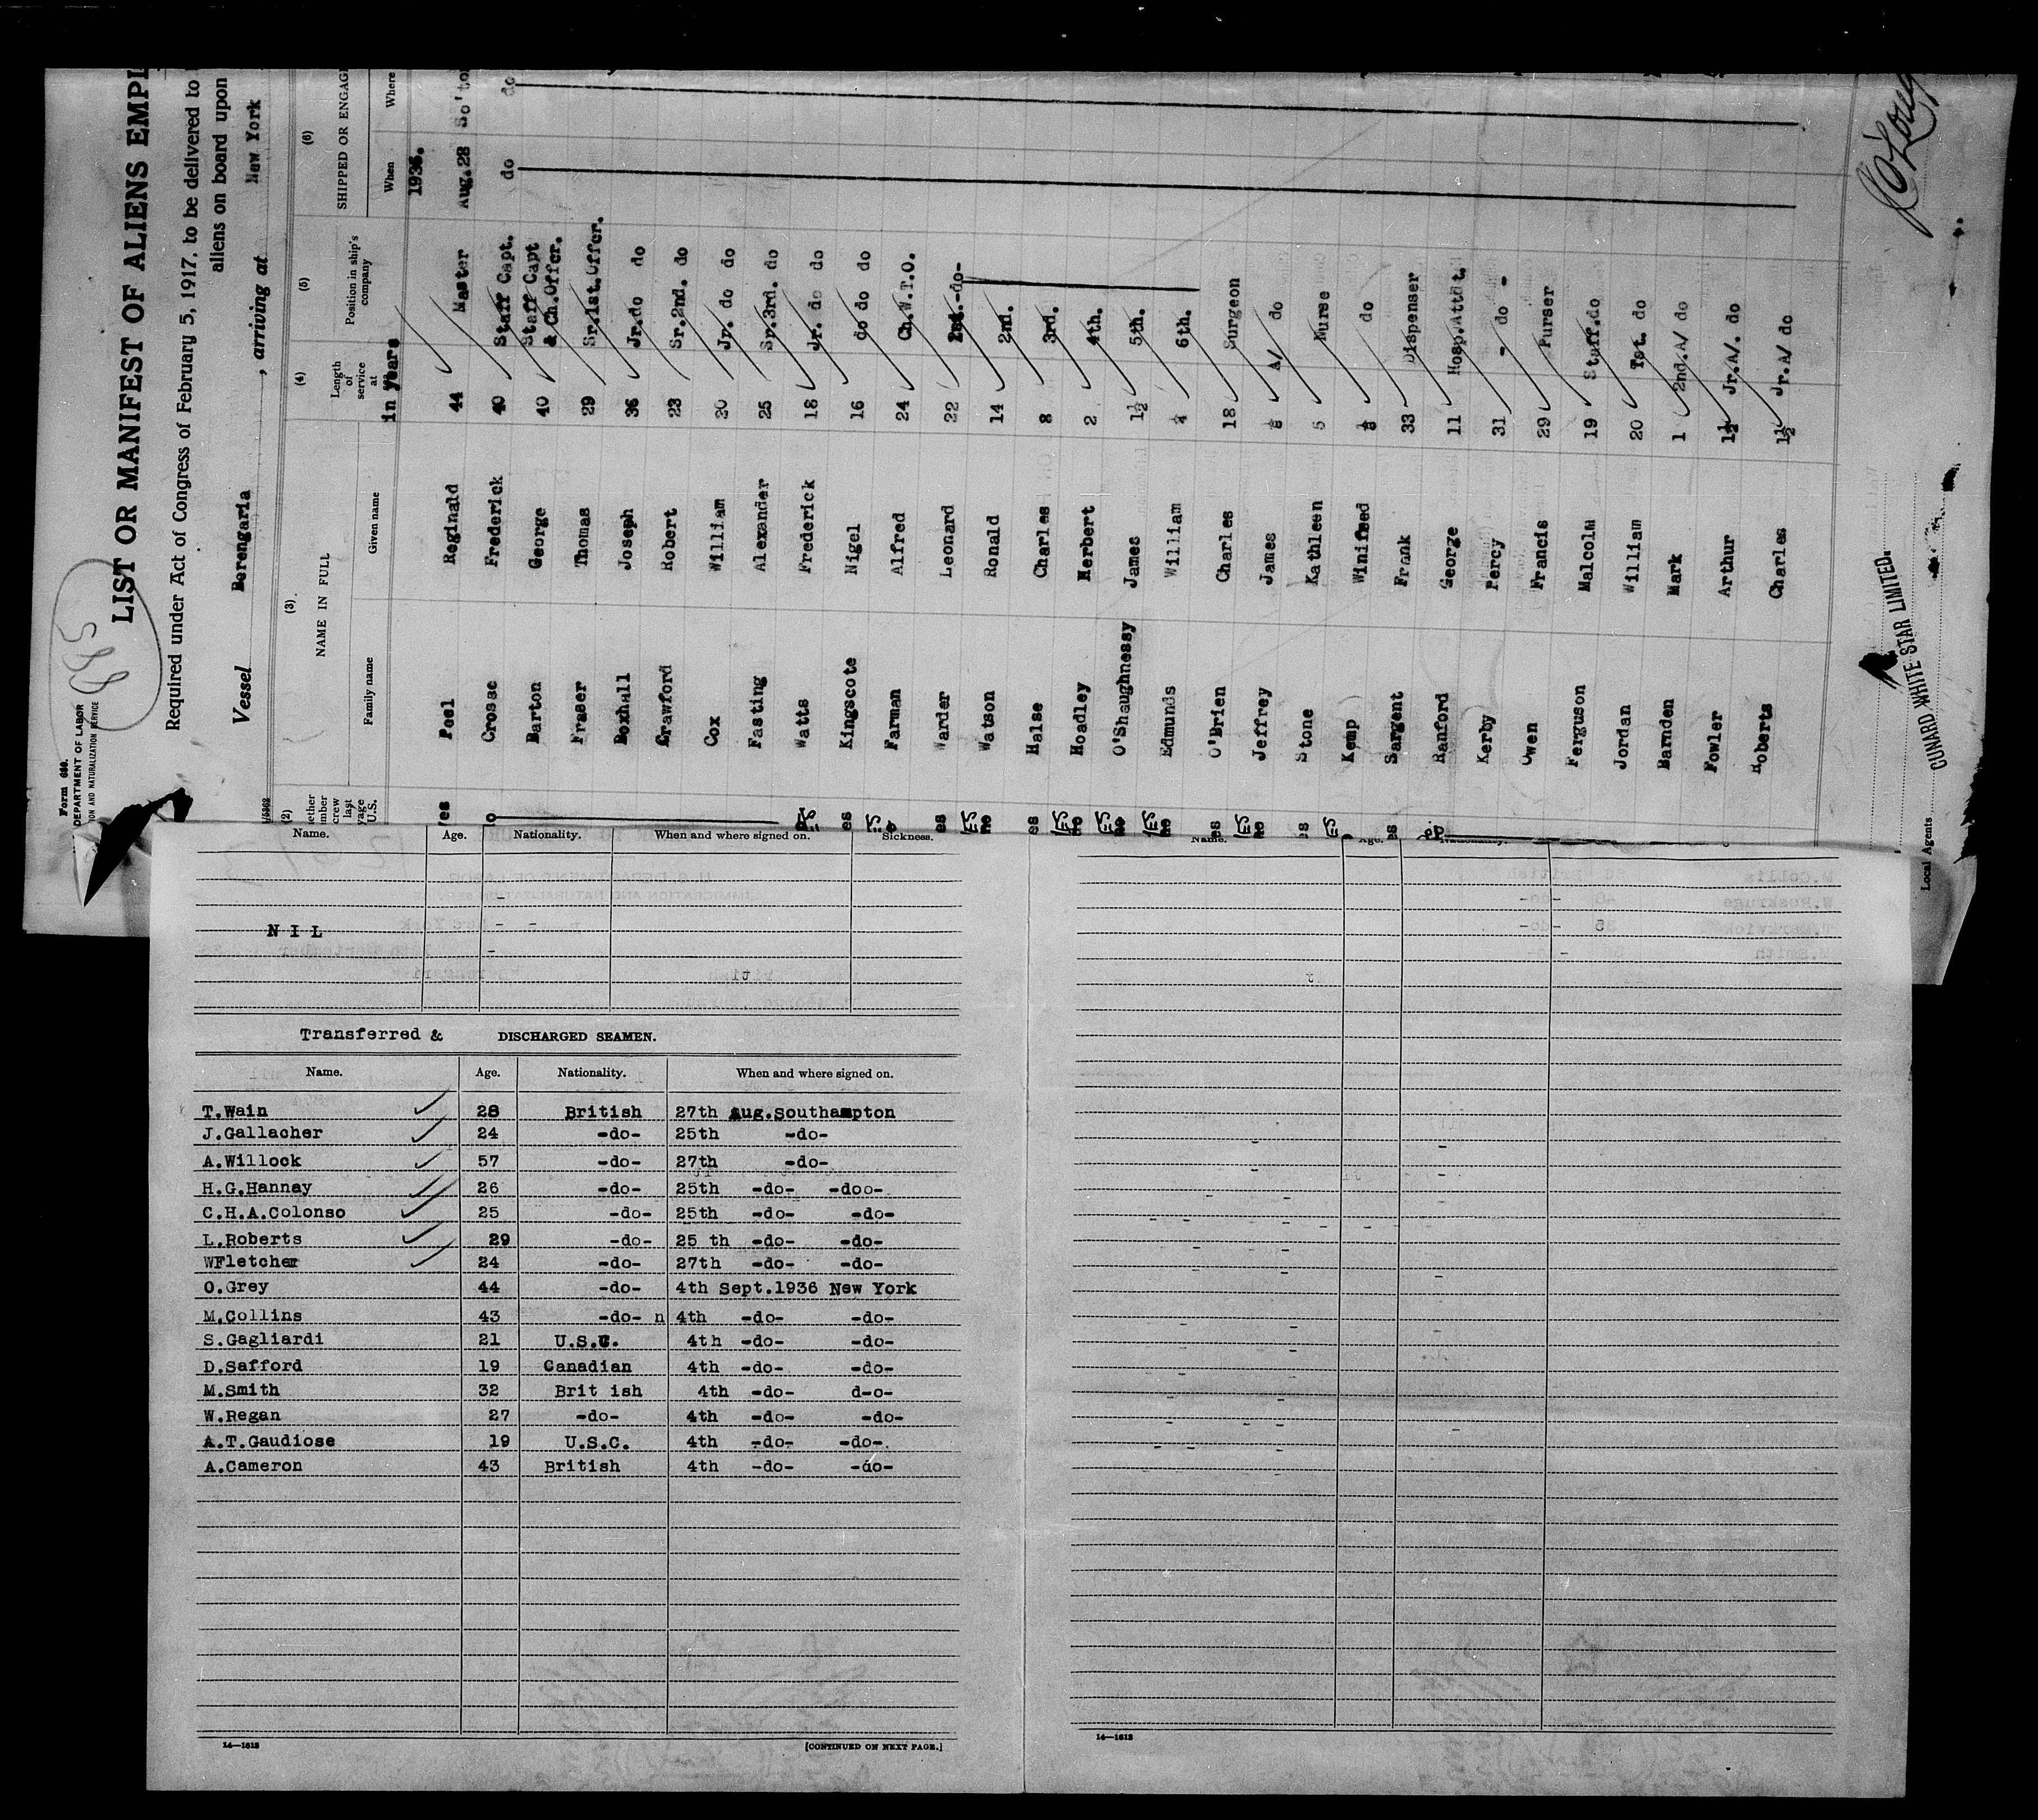 Form 680.
DEPARTMENT OF LABOR
ION AND NATURALIZATION SERVICE
895
LIST OR MANIFEST OF ALIENS EMPL
Required under Act of Congress of February 5, 1917, to be delivered to
aliens on board upon
Vessel Berengaria , arriving at New York
(2) (3) (4) (5) (6)
ether mber crew last yage U.S. NAME IN FULL Length of service at Position in ship's company SHIPPED OR ENGAG
Family name Given name in Years When Where
1936.
es Peel Reginald 44 Master Aug.28 So'to
o Crosse Frederick 40 Staff Capt. do do
Barton George 40 Staff Capt & Ch.Offer.
Fraser Thomas 29 Sr.1st.Offer.
Boxhall Joseph 36 Jr.do do
Crawford Robert 23 Sr.2nd. do
Cox William 20 Jr. do do
Fasting Alexander 25 Sr.3rd. do
Watts Frederick 18 Jr. do do
es Kingscote Nigel 16 do do do
Farman Alfred 24 Ch.W.T.O.
es Warder Leonard 22 1st.-do-
Watson Ronald 14 2nd.
es Halse Charles 8 3rd.
Hoadley Herbert 2 4th.
O'Shaughnessy James 1½ 5th.
Edmunds William ¼ 6th.
es O'Brien Charles 18 Surgeon
Jeffrey James ⅛ A/ do
es Stone Kathleen 5 Nurse
Kemp Winifred ⅛ do
es Sargent Frank 33 Dispenser
Ranford George 11 Hosp.Attdt.
Kerby Percy 31 - do -
Owen Francis 29 Purser
Ferguson Malcolm 19 Staff.do
Jordan William 20 Tst. do
Barnden Mark 1 2nd.A/ do
Fowler Arthur 1½ Jr.A/. do
Roberts Charles 1½ Jr.A/ do
Local Agents CUNARD WHITE STAR LIMITED.
Name. Age. Nationality. When and where signed on. Sickness.
NIL
Transferred & DISCHARGED SEAMEN.
Name. Age. Nationality. When and where signed on.
T.Wain 28 British 27th Aug.Southampton
J.Gallacher 24 -do- 25th -do-
A.Willock 57 -do- 27th -do-
H.G.Hannay 26 -do- 25th -do- -doo-
C.H.A.Colonso 25 -do- 25th -do- -do-
L.Roberts 29 -do- 25 th -do- -do-
WFletcher 24 -do- 27th -do- -do-
O.Grey 44 -do- 4th Sept.1936 New York
M.Collins 43 -do- n 4th -do- -do-
S.Gagliardi 21 U.S.C. 4th -do- -do-
D.Safford 19 Canadian 4th -do- -do-
M.Smith 32 Brit ish 4th -do- d-o-
W.Regan 27 -do- 4th -do- -do-
A.T.Gaudiose 19 U.S.C. 4th -do- -do-.
A.Cameron 43 British 4th -do- -do-
14—1613 [CONTINUED ON NEXT PAGE.]
Name. Age. Nationality.
14—1613